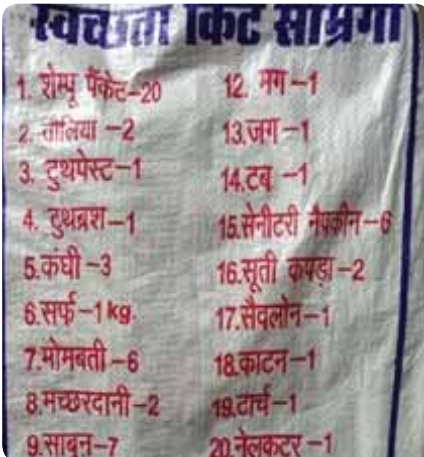 स्वच्छता किट सामग्री
1. शेम्पू पैकेट-20
2. तौलिया -2
3. टुथपेस्ट-1
4. टुथब्रश-1
5.कंघी -3
6.सर्फ-1 kg.
7.मोमबती -6
8.मच्छरदानी -2
9.साबुन-7
12. मग -1
13.जग -1
14.टब -1
15.सेनीटरी नैपकीन-6
16.सूती कपड़ा -2
17.सैवलोन-1
18.काटन -1
19.टार्च-1
20.नेलकटर -1